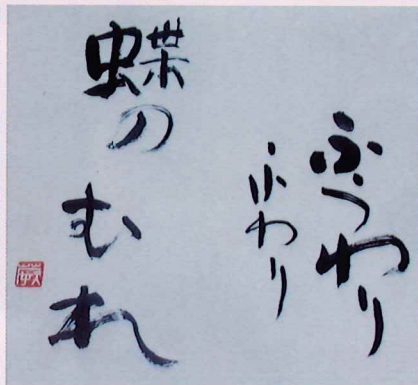 ふうわり
ふわり
蝶の
むれ